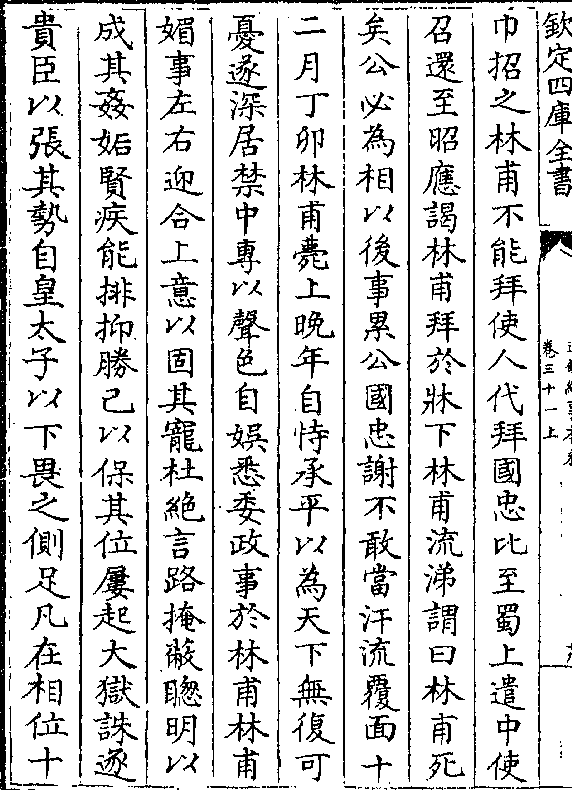 欽定四庫全書
卷三十一上
巾招之林甫不能拜使人代拜國忠比至蜀上遣中使
召還至昭應謁林甫拜於牀下林甫流涕謂曰林甫死
矣公必為相以後事累公國忠謝不敢當汗流覆面十
二月丁卯林甫薨上晚年自恃承平以為天下無復可
憂遂深居禁中專以聲色自娛悉委政事於林甫林甫
媚事左右迎合上意以固其寵杜絶言路掩蔽聰明以
成其姦妬賢疾能排抑勝己以保其位屢起大獄誅逐
貴臣以張其勢自皇太子以下畏之側足凡在相位十